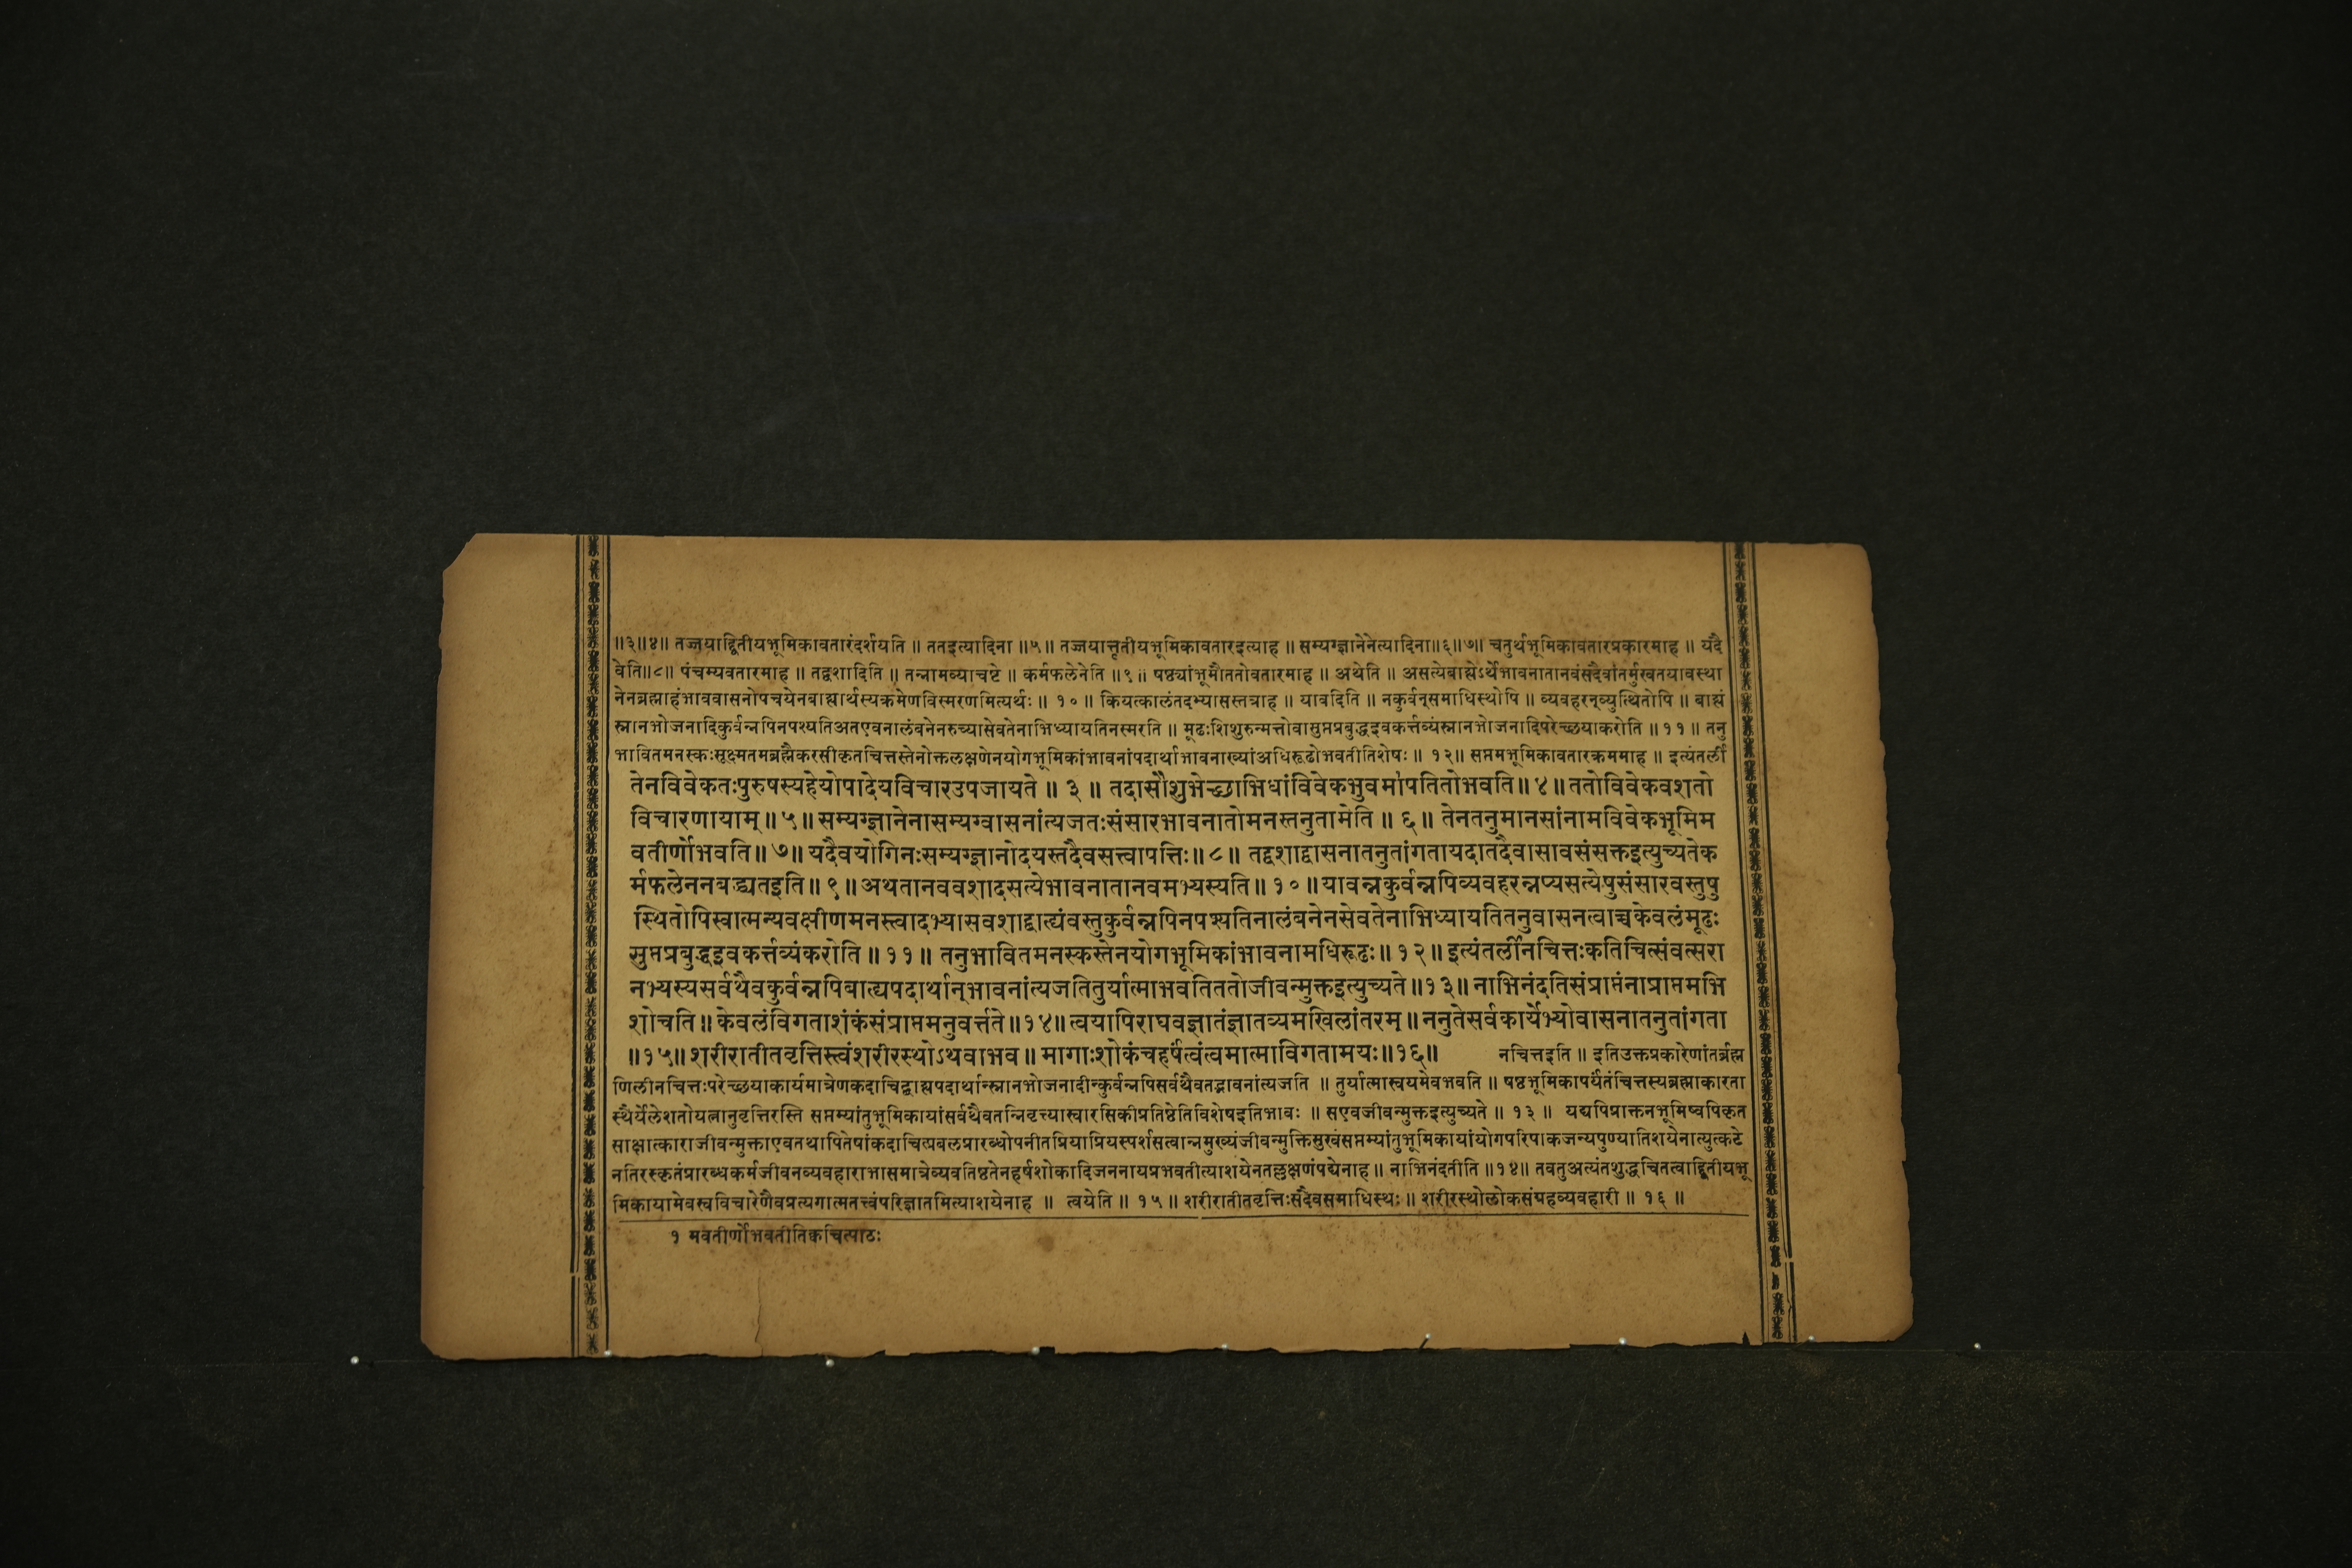 ॥३॥४॥ तज्जयाद्द्वितीयभूमिकावतारंदर्शयति ॥ ततइत्यादिना ॥५॥ तज्जयात्तृतीयभूमिकावतारइत्याह ॥ सम्यग्ज्ञानेनेत्यादिना॥६॥७॥ चतुर्थभूमिकावतारप्रकारमाह ॥ यदै
वेति॥८॥ पंचम्यवतारमाह ॥ तद्वशादिति ॥ तन्नामव्याचष्टे ॥ कर्मफलेनेति ॥९॥ षष्ठ्यांभूमौततोवतारमाह ॥ अथेति ॥ असत्येबाह्येऽर्थेभावनातानवंसदैवांतर्मुखतयावस्था
नेनब्रह्माहंभाववासनोपचयेनबाह्यार्थस्यक्रमेणविस्मरणमित्यर्थः ॥ १० ॥ कियत्कालंतदभ्यासस्तत्राह ॥ यावदिति ॥ नकुर्वन्समाधिस्थोपि ॥ व्यवहरन्व्युत्थितोपि ॥ बाह्यं
स्नानभोजनादिकुर्वन्नपिनपश्यतिअतएवनालंबनेनरुच्यासेवतेनाभिध्यायतिनस्मरति ॥ मूढःशिशुरुन्मत्तोवासुप्तप्रबुद्धइवकर्त्तव्यंस्नानभोजनादिपरेच्छयाकरोति ॥११॥ तनु
भावितमनस्कःसूक्ष्मतमब्रह्मैकरसीकृतचित्तस्तेनोक्तलक्षणेनयोगभूमिकांभावनांपदार्थाभावनाख्यांअधिरूढोभवतीतिशेषः ॥ १२॥ सप्तमभूमिकावतारक्रममाह ॥ इत्यंतर्ली
तेनविवेकतःपुरुषस्यहेयोपादेयविचारउपजायते ॥ ३ ॥ तदासौशुभेच्छाभिधांविवेकभुवमापतितोभवति॥ ४॥ ततोविवेकवशतो
विचारणायाम् ॥ ५॥ सम्यग्ज्ञानेनासम्यग्वासनांत्यजतःसंसारभावनातोमनस्तनुतामेति ॥ ६॥ तेनतनुमानसांनामविवेकभूमिम
वतीर्णोभवति॥ ७॥ यदैवयोगिनःसम्यग्ज्ञानोदयस्तदैवसत्त्वापत्तिः॥ ८॥ तद्वशाद्वासनातनुतांगतायदातदैवासावसंसक्तइत्युच्यतेक
र्मफलेननबद्ध्यतइति॥ ९॥ अथतानववशादसत्येभावनातानवमभ्यस्यति॥ १०॥ यावन्नकुर्वन्नपिव्यवहरन्नप्यसत्येषुसंसारवस्तुषु
स्थितोपिस्वात्मन्यवक्षीणमनस्त्वादभ्यासवशाद्बाह्यंवस्तुकुर्वन्नपिनपश्यतिनालंबनेनसेवतेनाभिध्यायतितनुवासनत्वाच्चकेवलंमूढः
सुप्तप्रबुद्धइवकर्त्तव्यंकरोति॥ ११॥ तनुभावितमनस्कस्तेनयोगभूमिकांभावनामधिरूढः॥ १२॥ इत्यंतर्लीनचित्तःकतिचित्संवत्सरा
नभ्यस्यसर्वथैवकुर्वन्नपिबाह्यपदार्थान्भावनांत्यजतितुर्यात्माभवतिततोजीवन्मुक्तइत्युच्यते॥१३॥ नाभिनंदतिसंप्राप्तंनाप्राप्तमभि
शोचति॥ केवलंविगताशंकंसंप्राप्तमनुवर्त्तते॥१४॥ त्वयापिराघवज्ञातंज्ञातव्यमखिलांतरम्॥ ननुतेसर्वकार्येभ्योवासनातनुतांगता
॥१५॥ शरीरातीतवृत्तिस्त्वंशरीरस्थोऽथवाभव॥ मागाःशोकंचहर्षंत्वंत्वमात्माविगतामयः॥१६॥ नचित्तइति ॥ इतिउक्तप्रकारेणांतर्ब्रह्म
णिलीनचित्तःपरेच्छयाकार्यमात्रेणकदाचिद्बाह्यपदार्थान्स्नानभोजनादीन्कुर्वन्नपिसर्वथैवतद्भावनांत्यजति ॥ तुर्यात्मास्वयमेवभवति ॥ षष्ठभूमिकापर्यंतंचित्तस्यब्रह्माकारता
स्थैर्येलेशतोयत्नानुवृत्तिरस्ति सप्तम्यांतुभूमिकायांसर्वथैवतन्निवृत्त्यास्वारसिकीप्रतिष्ठेतिविशेषइतिभावः ॥ सएवजीवन्मुक्तइत्युच्यते ॥ १३ ॥ यद्यपिप्राक्तनभूमिष्वपिकृत
साक्षात्काराजीवन्मुक्ताएवतथापितेषांकदाचित्प्रबलप्रारब्धोपनीतप्रियाप्रियस्पर्शसत्वान्नमुख्यंजीवन्मुक्तिसुखंसप्तम्यांतुभूमिकायांयोगपरिपाकजन्यपुण्यातिशयेनात्युत्कटे
नतिरस्कृतंप्रारब्धकर्मजीवनव्यवहाराभासमात्रेव्यवतिष्ठतेनहर्षशोकादिजननायप्रभवतीत्याशयेनतल्लक्षणंपद्येनाह ॥ नाभिनंदतीति ॥१४॥ तवतुअत्यंतशुद्धचितत्वाद्द्वितीयभू
मिकायामेवस्वविचारेणैवप्रत्यगात्मतत्त्वंपरिज्ञातमित्याशयेनाह ॥ त्वयेति ॥ १५ ॥ शरीरातीतवृत्तिःसदैवसमाधिस्थः ॥ शरीरस्थोलोकसंग्रहव्यवहारी ॥ १६ ॥
१ मवतीर्णोभवतीतिक्वचित्पाठः